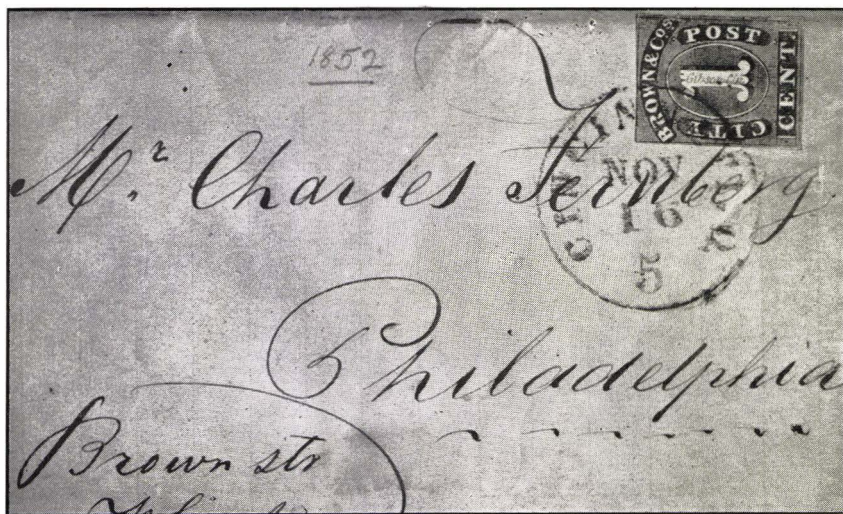 1852
BROWN & CO'S
CITY POST
1
CENT.
CINCINNATI
NOV
16
5
Mr. Charles Sternberg
Philadelphia
Brown str